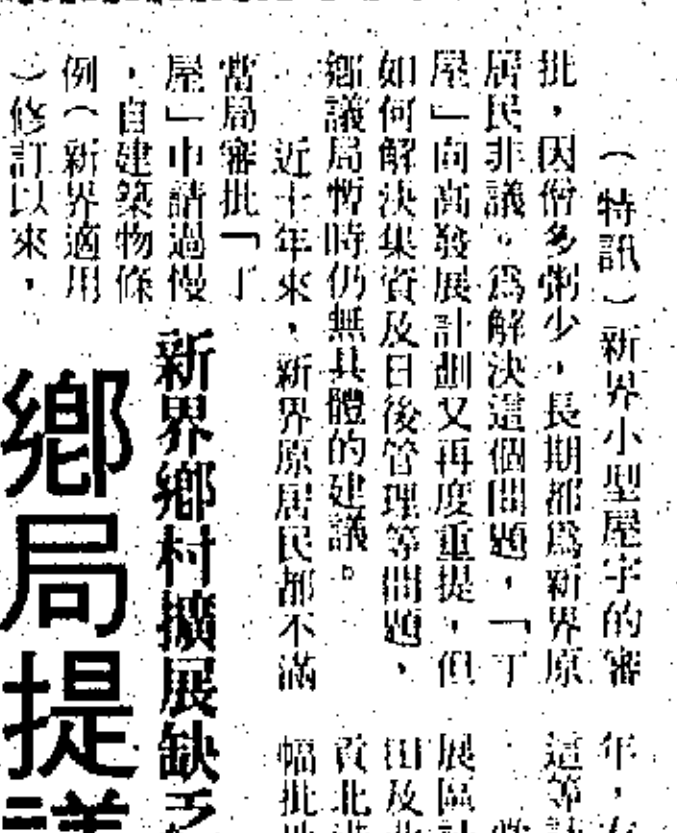 （特訊）新界小型屋宇的審
批，因僧多粥少，長期都爲新界原
居民非議。爲解決這個問題，「丁
屋」向高發展計劃又再度重提，但
如何解決集資及日後管理等問題，
鄉議局暫時仍無具體的建議。
近十年來，新界原居民都不滿
當局審批「丁
屋」申請過慢
，自建築物條
例（新界適用
）修訂以來，
新界鄉村擴展缺乏
鄉局提議
年，
這等
展區計
田及北
貢北
幅批